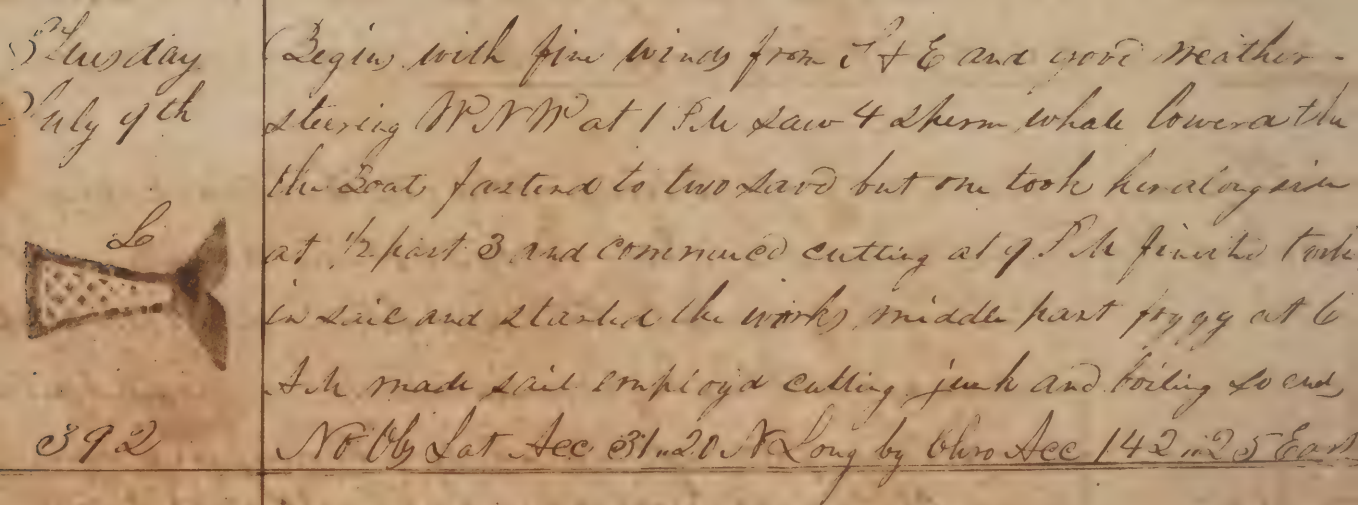 Thursday
July 9th
L
392
Begins with fine winds from S & E and good weather -
steering WNW at 1 PM saw 4 Sperm whale lowerd the
the Boats fastend to two savd but one took her alongside
at 1/2 past 3 and commencd cutting at 9 PM finishd took
in sail and started the works middle part foggy at 6
AM made sail employd cutting junk and boiling so ends
No Obs Lat Acc 31"20 N Long by Chro Acc 142"25 East